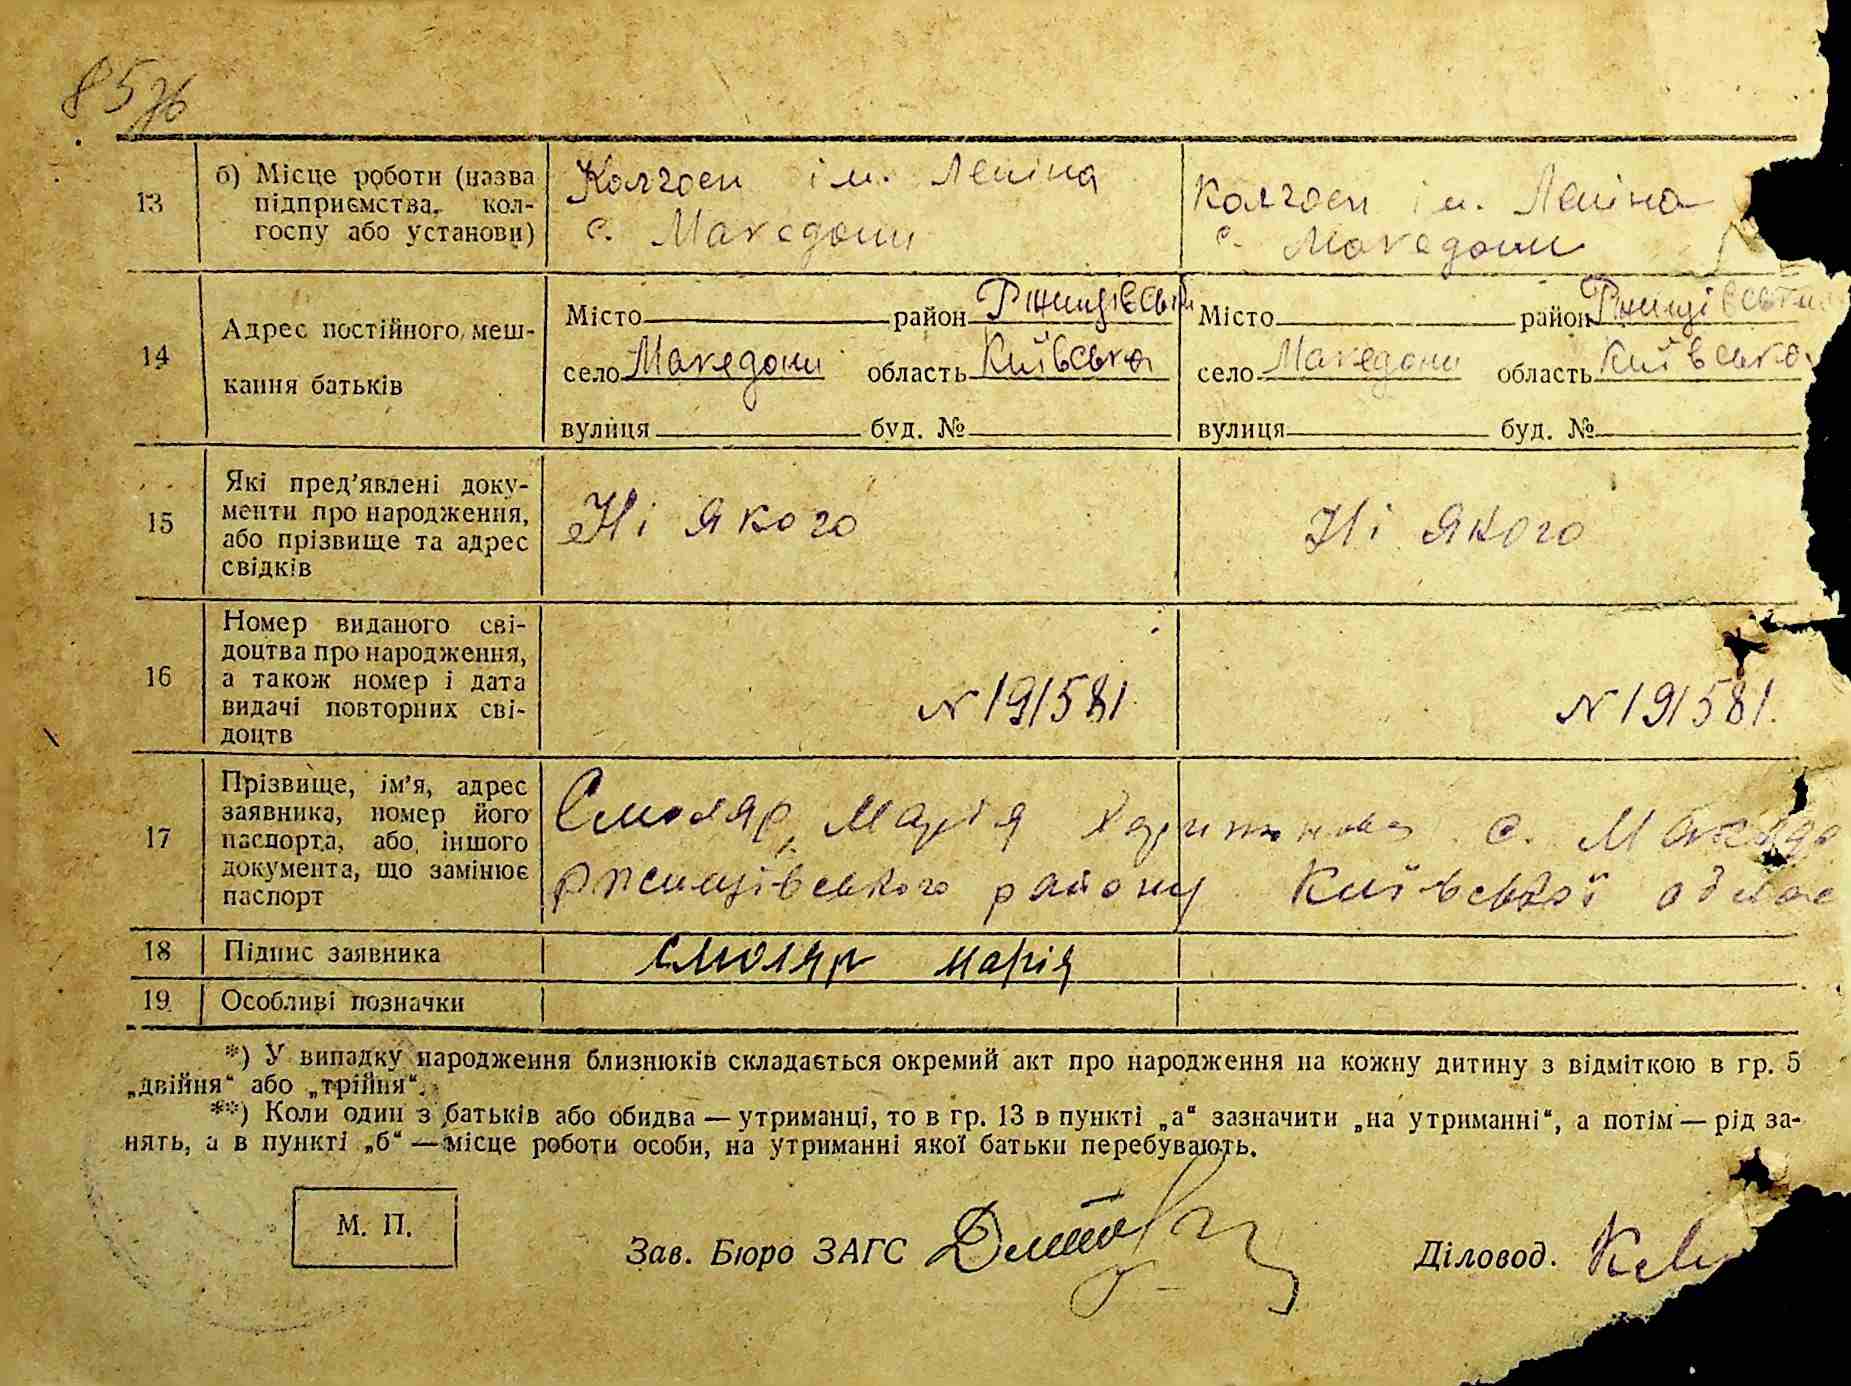 85зв
13
б) Місце роботи (назва
підприємства, кол-
госпу або установи)
Колгосп ім. Леніна
с. Македони
Колгосп ім. Леніна
с. Македони
14
Адрес постійного меш-
кання батьків
Місто район Ржищівськ
село Македони область Київська
вулиця буд. №
Місто район Ржищівськ
село Македони область Київська
вулиця буд. №
15
Які пред'явлені доку-
менти про народження,
або прізвище та адрес
свідків
Ні якого
Ні якого
16
Номер виданого сві-
доцтва про народження,
а також номер і дата
видачі повторних сві-
доцтв
N 191581
N 191581.
17
Прізвище, ім'я, адрес
заявника, номер його
паспорта, або іншого
документа, що замінює
паспорт
Смоляр Марія Харитонова с. Македо
Ржищівського району Київської облас
18
Підпис заявника
Смоляр Марія
19
Особливі позначки
*) У випадку народження близнюків складається окремий акт про народження на кожну дитину з відміткою в гр. 5
„двійня“ або „трійня“.
**) Коли один з батьків або обидва — утриманці, то в гр. 13 в пункті „а“ зазначити „на утриманні“, а потім — рід за-
нять, а в пункті „б“ — місце роботи особи, на утриманні якої батьки перебувають.
М. П.
Зав. Бюро ЗАГС
Діловод.